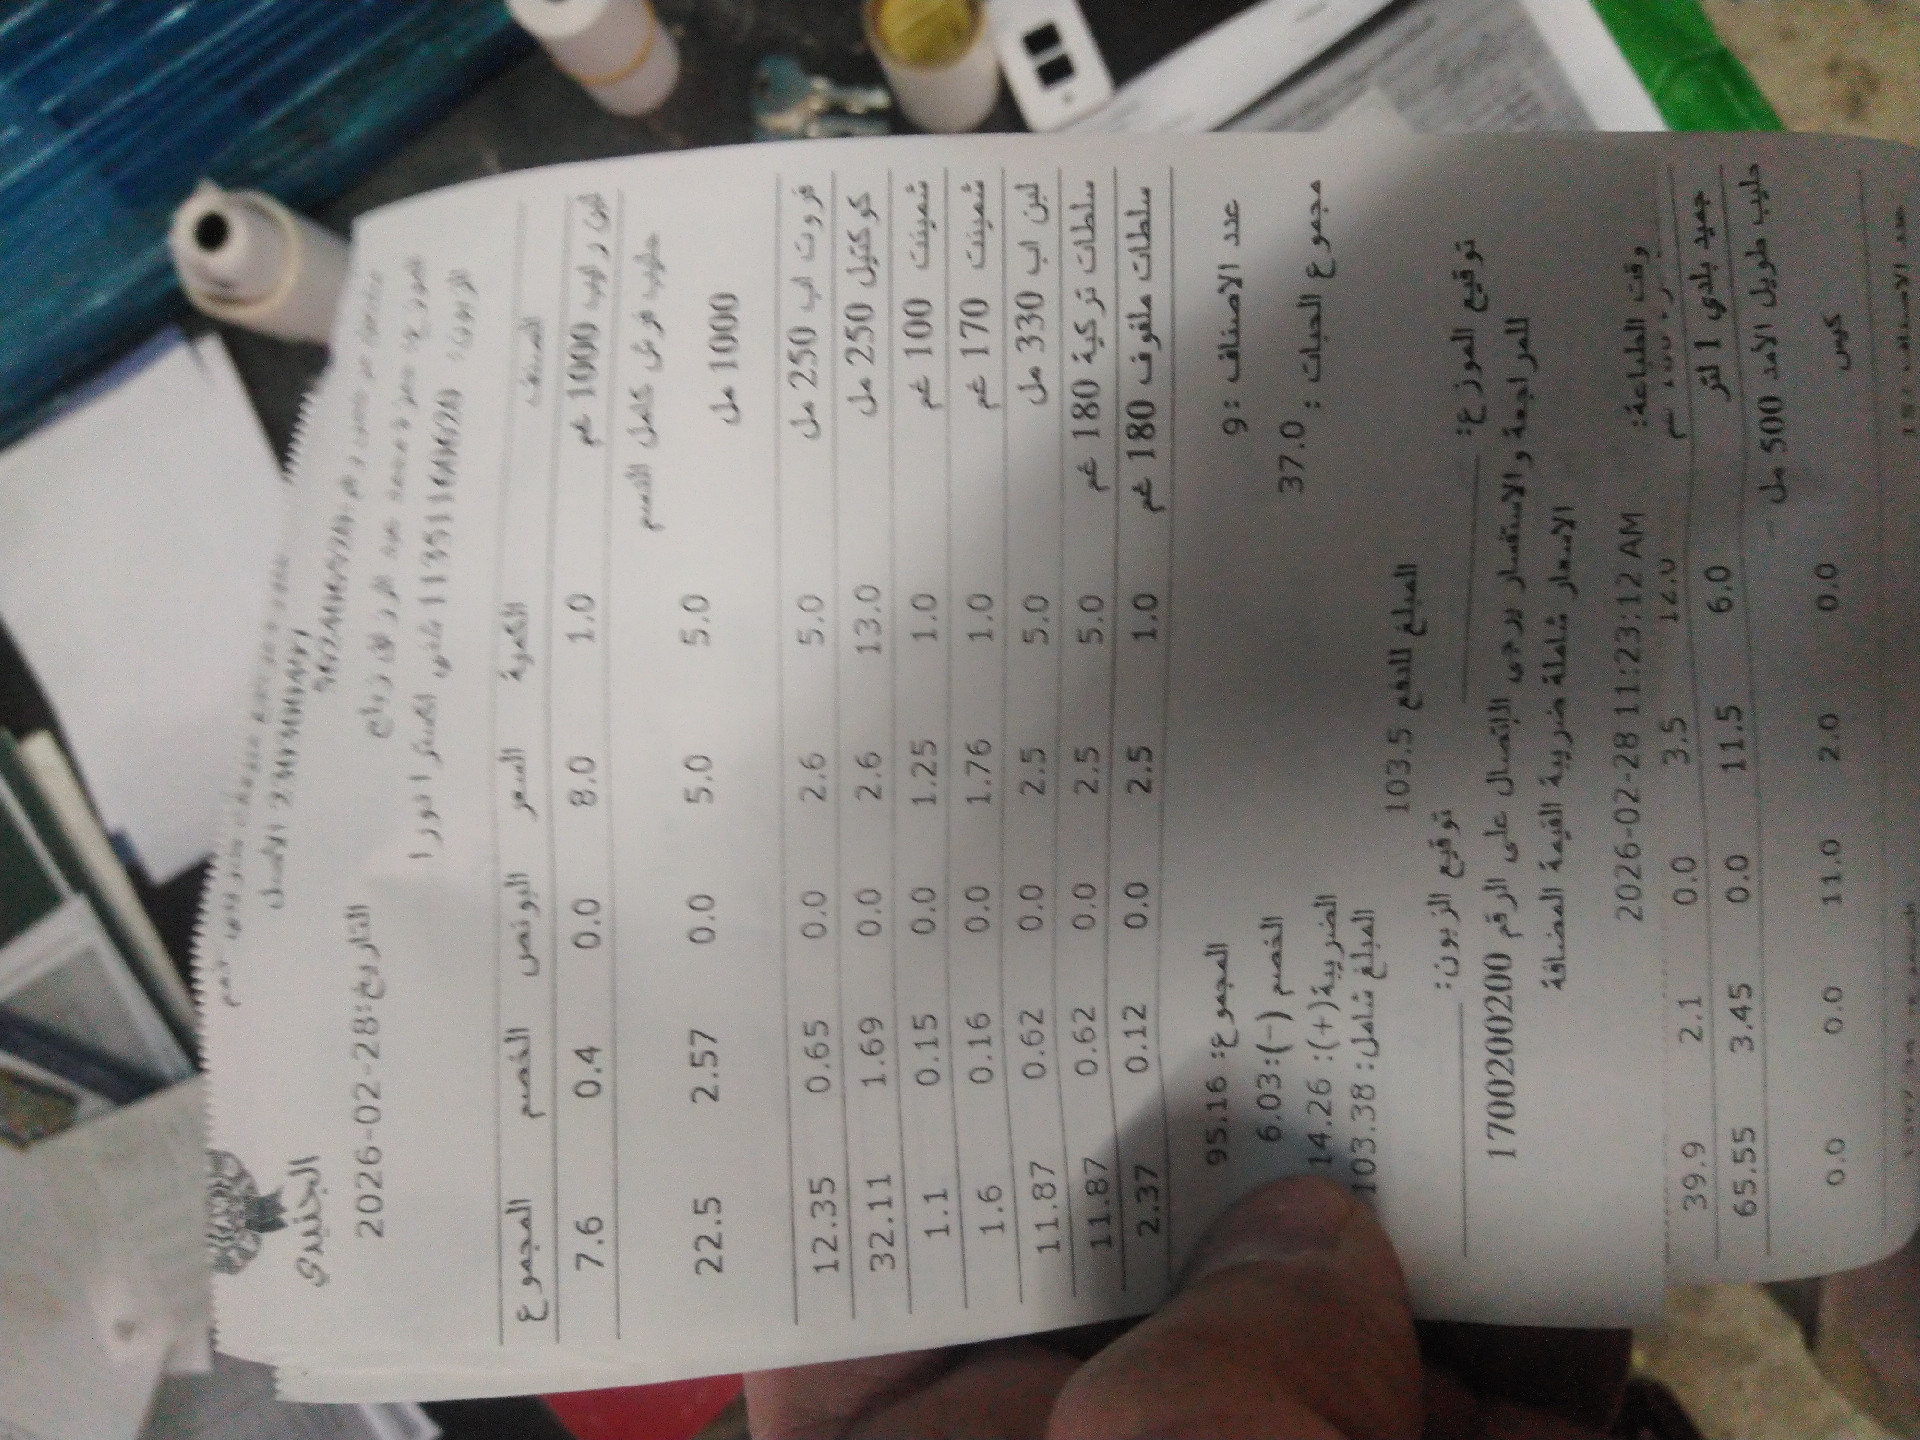 الجنيدي
الاصل
التاريخ:2026-02-28
الصنف الكمية السعر البونص الخصم المجموع
1000 غم 1.0 8.0 0.0 0.4 7.6
حليب فرش كامل الدسم
1000 مل 5.0 5.0 0.0 2.57 22.5
فروت اب 250 مل 5.0 2.6 0.0 0.65 12.35
كوكتيل 250 مل 13.0 2.6 0.0 1.69 32.11
شمينت 100 غم 1.0 1.25 0.0 0.15 1.1
شمينت 170 غم 1.0 1.76 0.0 0.16 1.6
لبن اب 330 مل 5.0 2.5 0.0 0.62 11.87
سلطات تركية 180 غم 5.0 2.5 0.0 0.62 11.87
سلطات ملفوف 180 غم 1.0 2.5 0.0 0.12 2.37
عدد الاصناف :9 المجموع: 95.16
مجموع الحبات : 37.0 الخصم (-):6.03
الضريبة(+): 14.26
المبلغ شامل: 103.38
المبلغ للدفع 103.5
توقيع الموزع: توقيع الزبون:
للمراجعة والاستفسار يرجى الاتصال على الرقم 1700200200
الاسعار شاملة ضريبة القيمة المضافة
وقت الطباعة: 2026-02-28 11:23:12 AM
12.0 3.5 0.0 2.1 39.9
جميد بلدي 1 لتر 6.0 11.5 0.0 3.45 65.55
حليب طويل الأمد 500 مل
كيس 0.0 2.0 11.0 0.0 0.0